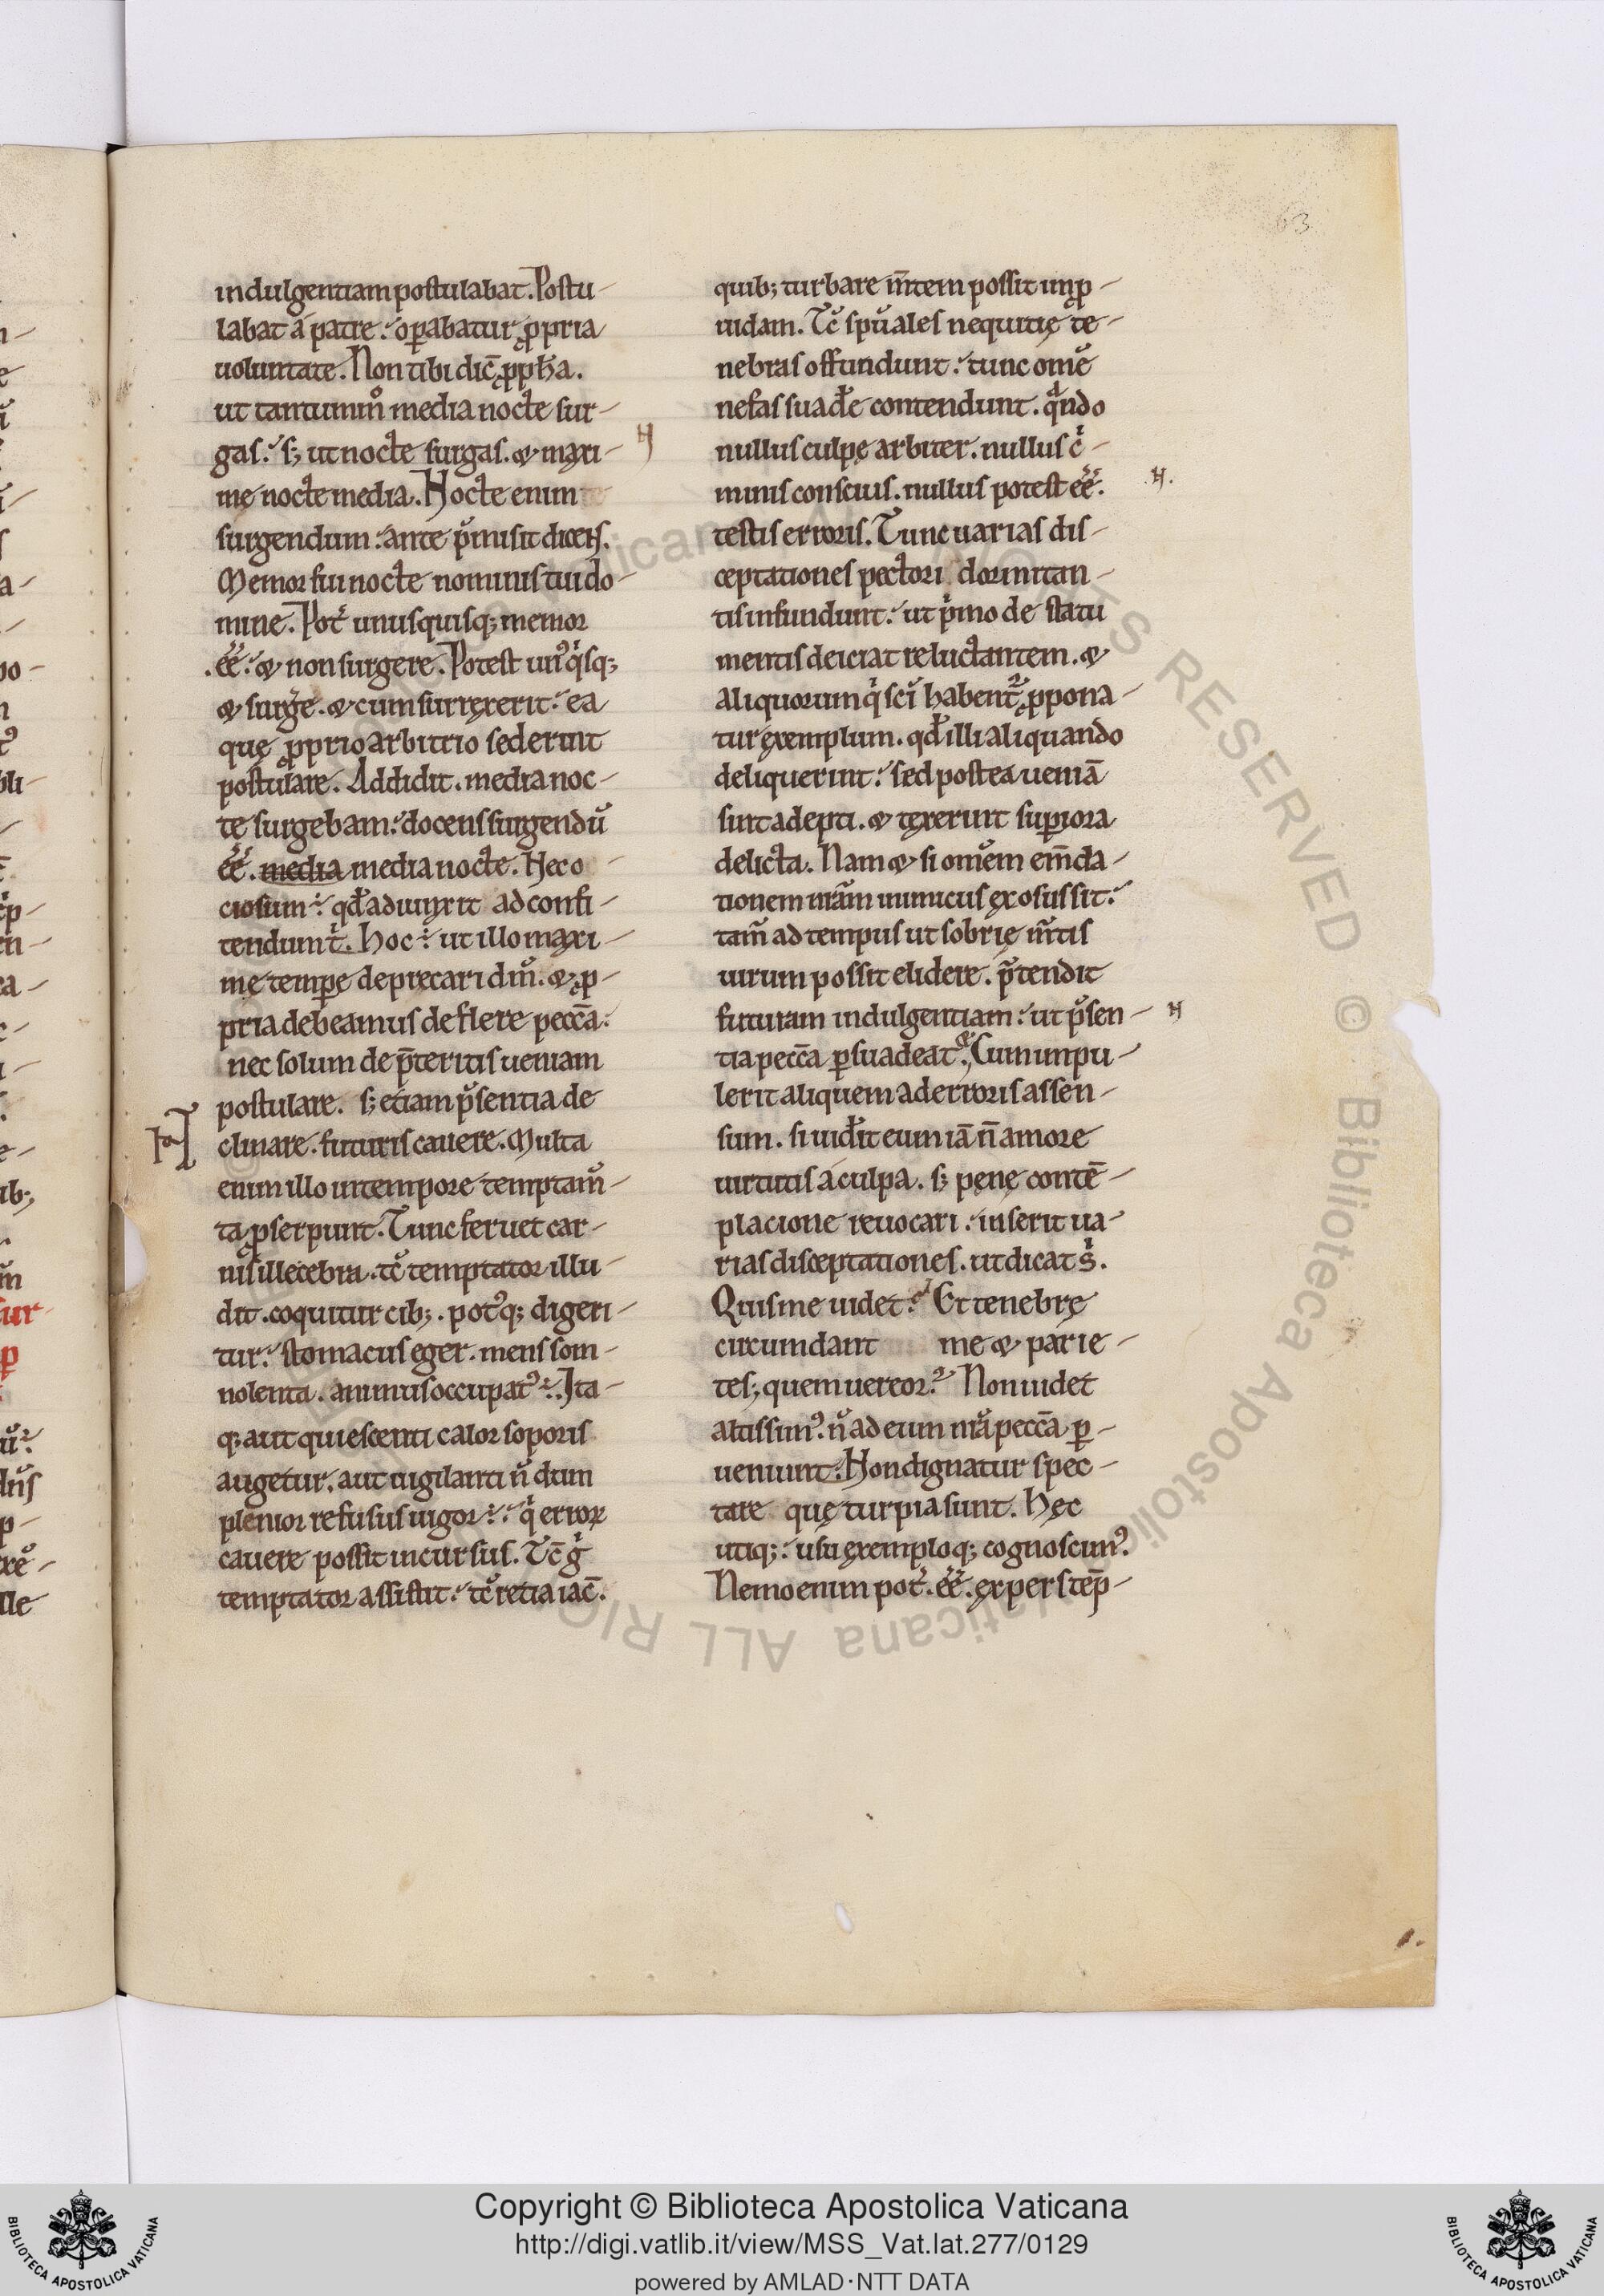 63
indulgentiam postulabat. Postu-
labat a patre. operabatur ꝓpria
uoluntate. Non tibi dic̄ ꝓph̄a.
ut tantummͦ media nocte sur-
gas. sꝫ ut nocte surgas. ⁊ maxi-
mę nocte media. Nocte enim
surgendum. ante p̄misit dicens.
Memor fui nocte nominis tui do-
mine. Pot̄ unusquisqꝫ memor
.eē. ⁊ non surgere. Potest un⁹qͥsqꝫ
⁊ surḡe. ⁊ cum surrexerit. ea
quę ꝓprio arbitrio sederint
postulare. Addidit. media noc-
te surgebam. docens surgendū
eē. media media nocte. Nec o
ciosum. qđ adiunxit ad confi-
tendum t̄. hoc ÷ ut illo maxi-
mę tempe depręcari dm̄. ⁊ ꝓ-
pria debeamus deflere peccā.
nec solum de p̄teritis ueniam
postulare. sꝫ etiam p̄sentia de
clinare. futuris cauere. Multa
enim illo in tempore temptam̄-
ta ꝓserpunt. Tunc feruet car-
nis illecebra. tc̄ temptator illu-
dit. coquitur cibꝫ. pot⁹qꝫ digeri-
tur. stomacus eger. mens som-
nolenta. animus occupat⁹ ÷. Ita-
qꝫ aut quiescenti calor soporis
augetur. aut uigilanti n̄ dum
plenior refusus uigor ÷. qͥ erroꝝ
cauere possit incursus. Tc̄ gͥ
temptator assistit. tc̄ retia iac̄.
quibꝫ turbare m̄tem possit inꝓ-
uidam. Tc̄ spūales nequitię te-
nebras offundunt. tunc omē
nefas suadē contendunt. qͣndo
nullus culpę arbiter. nullus cͥ-
minis conscius. nullus potest eē.
testis erroris. Tunc uarias dis-
ceptationes pectori dormitan-
tis infundunt. ut pͥmo de statu
mentis deiciat reluctantem. ⁊
aliquorum qͥ sci habent̄ ꝓpona-
tur exemplum. qđ illi aliquando
deliquerint. sed postea ueniā
sint adepti. ⁊ texerint supiora
delicta. Nam ⁊ si omēm em̄da-
tionem nrām inimicus exosus sit.
tam̄ ad tempus ut sobrię m̄tis
uirum possit elidere. p̄tendit
futuram indulgentiam. ut p̄sen-
tia peccā ꝑsuadeat. Cum inpu-
lerit aliquem ad erroris assen-
sum. si uidēit eum iā n̄ amore
uirtutis a culpa. sꝫ penę contē-
placione reuocari. inserit ua-
rias disceptationes. ut dicat s̄.
Quis me uidet. Et tenebrę
circumdant me ⁊ parie-
tes; quem uereor. Non uidet
altissim⁹. n̄ ad eum nrā peccā ꝑ-
ueniunt. Non dignatur spec-
tare quę turpia sunt. Hęc
utiqꝫ. usu exemploqꝫ cognoscim⁹.
Nemo enim pot̄. eē. expers tēp-
Copyright © Biblioteca Apostolica Vaticana
http://digi.vatlib.it/view/MSS_Vat.lat.277/0129
powered by AMLAD·NTT DATA
BIBLIOTECA APOSTOLICA VATICANA
BIBLIOTECA APOSTOLICA VATICANA